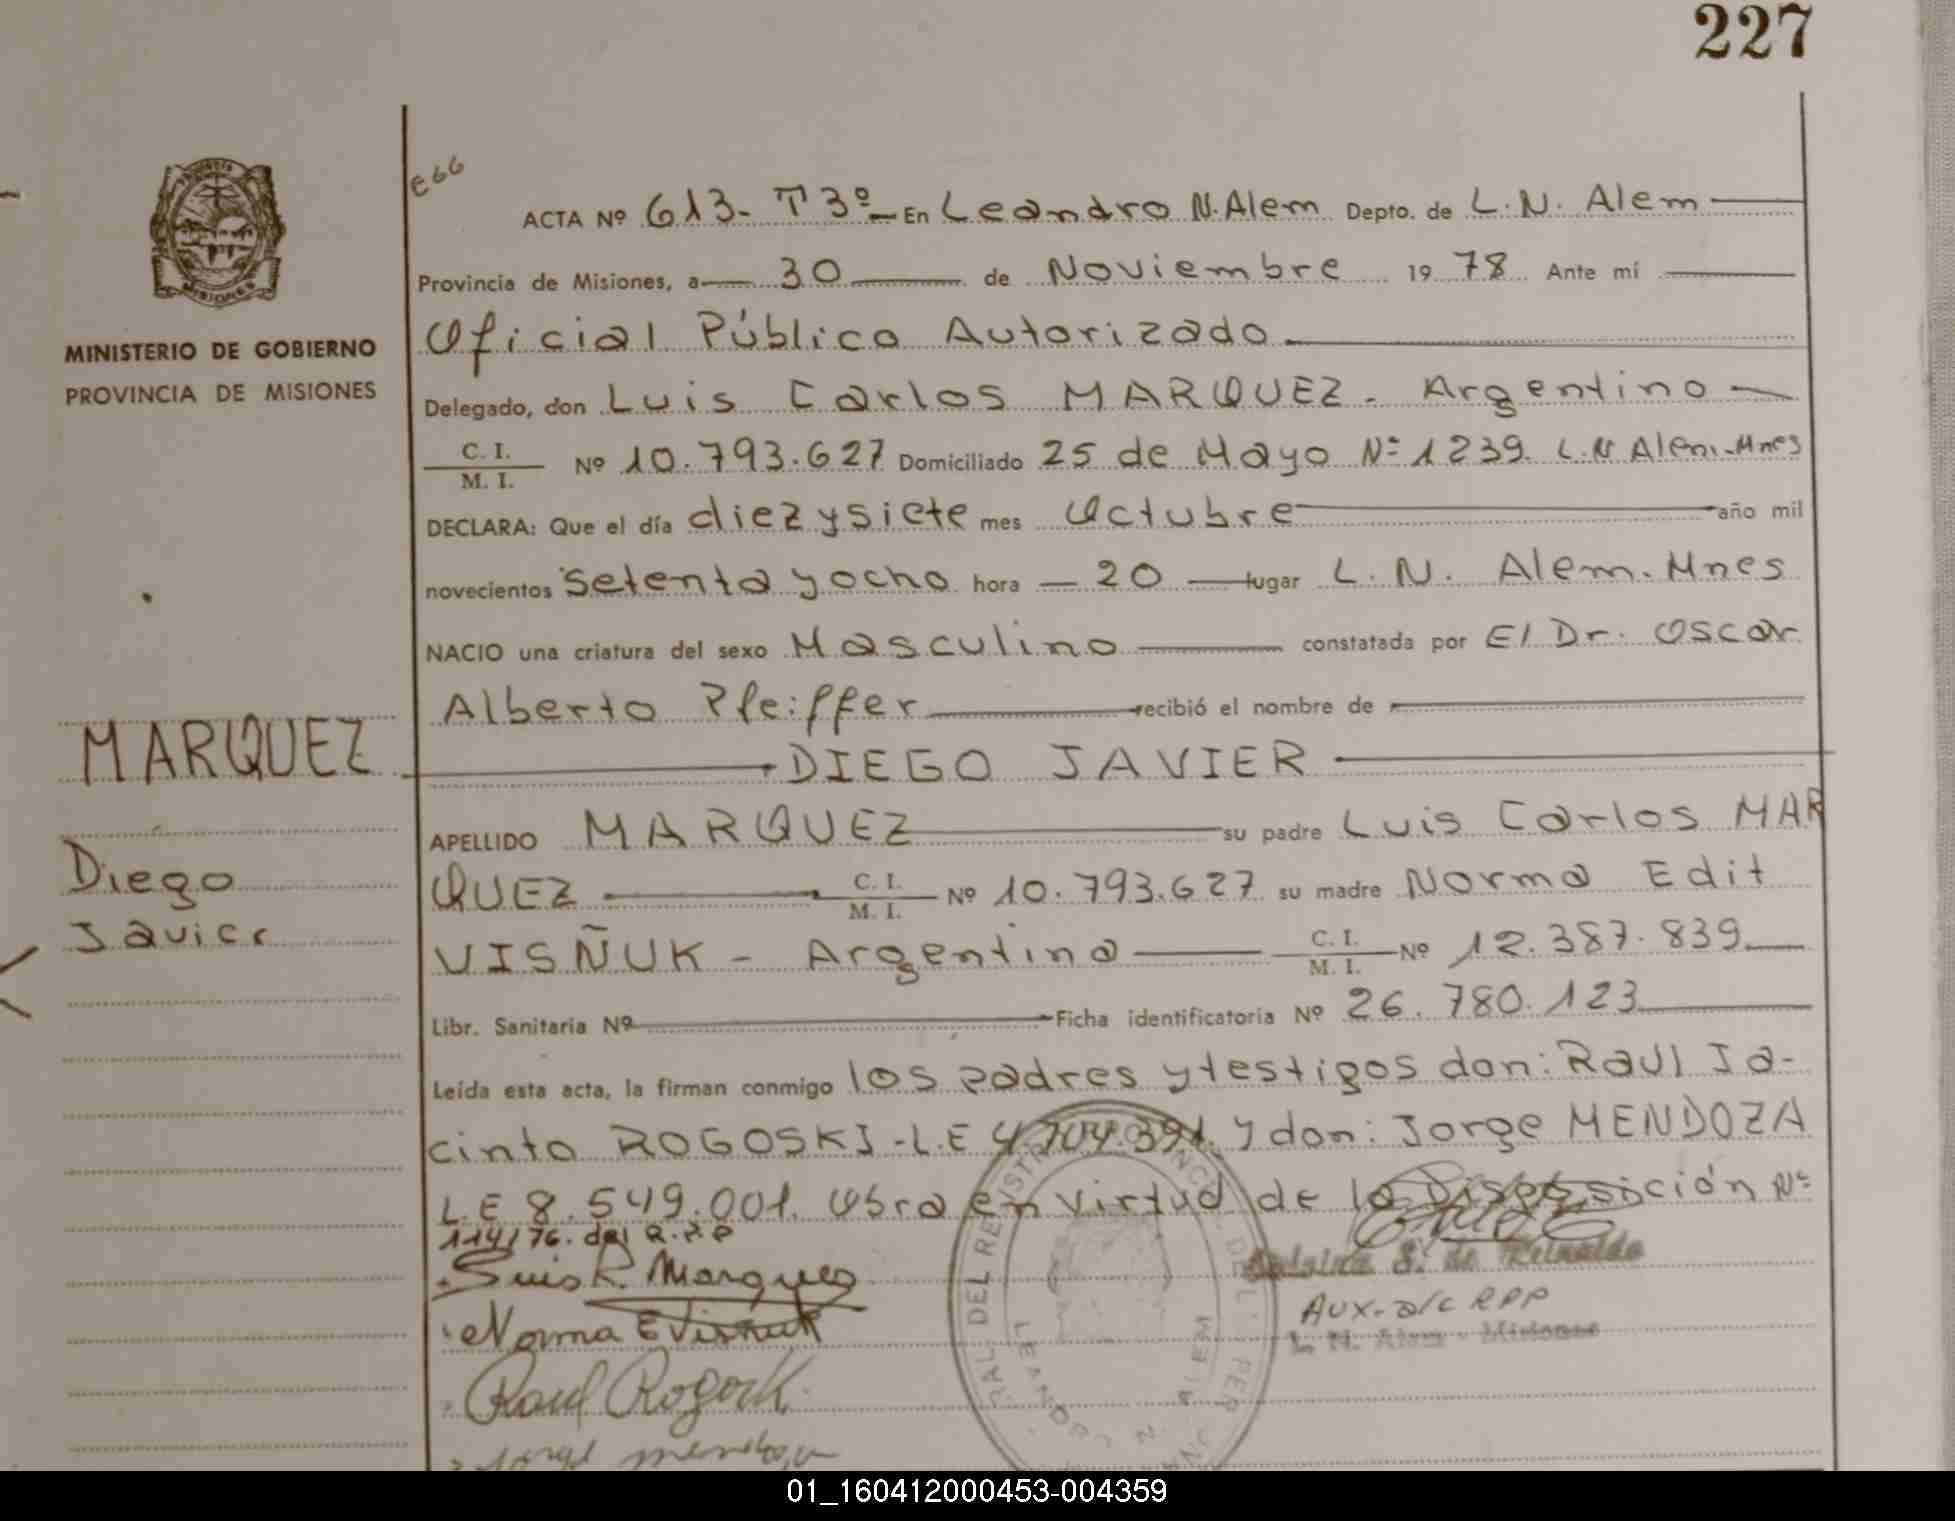 227
E66
ACTA Nº 613- T 3º- En Leandro N. Alem Depto. de L. N. Alem
Provincia de Misiones, a 30 de Noviembre 19 78 Ante mí
Oficial Público Autorizado
MINISTERIO DE GOBIERNO
PROVINCIA DE MISIONES
MISIONES
Delegado, don Luis Carlos MARQUEZ. Argentino
C. I.
M. I.
Nº 10.793.627 Domiciliado 25 de Mayo Nº 1239. L.N Alem.-Mnes
DECLARA: Que el día diez y siete mes Octubre año mil
novecientos setenta y ocho hora 20 lugar L. N. Alem. Mnes
NACIO una criatura del sexo Masculino constatada por El Dr. Oscar
Alberto Pfeiffer recibió el nombre de
DIEGO JAVIER
MARQUEZ
Diego
Javier
APELLIDO MARQUEZ su padre Luis Carlos MAR
QUEZ C. I. M. I. Nº 10.793.627 su madre Norma Edit
VISÑUK - Argentina C. I. M. I. Nº 12.387.839
Libr. Sanitaria Nº Ficha identificatoria Nº 26.780.123
Leída esta acta, la firman conmigo los padres y testigos don: Raul Ja-
cinto ROGOSKI-L.E 4.704.391. y don: Jorge MENDOZA
L.E 8.549.001. Obra en virtud de la Disposición Nº
114/76. del R.P.P
Marquez
Norma E Visñuk
S. de Reinaldo
AUX. a/c RPP
L. N. Alem - Misiones
Raul Rogoski
Jorge Mendoza
DEL REGISTRO PROVINCIAL DE
LEANDRO N. ALEM
01_160412000453-004359